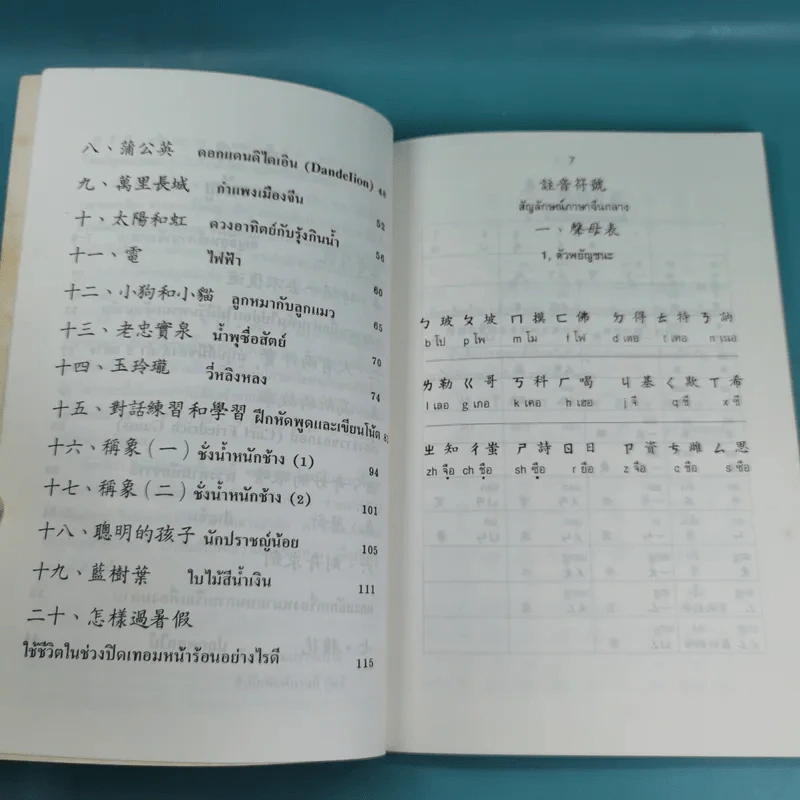 八、蒲公英 ดอกแดนดิไดเอิน (Dandelion) 48
九、萬里長城 กำแพงเมืองจีน 52
十、太陽和虹 ดวงอาทิตย์กับรุ้งกินน้ำ 56
十一、電 ไฟฟ้า 60
十二、小狗和小貓 ลูกหมากับลูกแมว 65
十三、老忠實泉 น้ำพุซื่อสัตย์ 70
十四、玉玲瓏 วี่หลิงหลง 74
十五、對話練習和學習 ฝึกหัดพูดและเขียนโน้ต
十六、稱象(一) ชั่งน้ำหนักช้าง (1) 94
十七、稱象(二) ชั่งน้ำหนักช้าง (2) 101
十八、聰明的孩子 นักปราชญ์น้อย 105
十九、藍樹葉 ใบไม้สีน้ำเงิน 111
二十、怎樣過暑假
ใช้ชีวิตในช่วงปิดเทอมหน้าร้อนอย่างไรดี 115
7
註音符號
สัญลักษณ์ภาษาจีนกลาง
一、聲母表
1, ตัวพยัญชนะ
ㄅ玻 ㄆ坡 ㄇ摸 ㄈ佛 ㄉ得 ㄊ特 ㄋ訥
b โป p โพ m โม f โฟ d เตอ t เทอ n เนอ
ㄌ勒 ㄍ哥 ㄎ科 ㄏ喝 ㄐ基 ㄑ欺 ㄒ希
l เลอ g เกอ k เคอ h เฮอ j จี q ชี x ซี
ㄓ知 ㄔ蚩 ㄕ詩 ㄖ日 ㄗ資 ㄘ雌 ㄙ思
zh จือ ch ชือ sh ซือ r ยือ z จือ c ชือ s ซือ